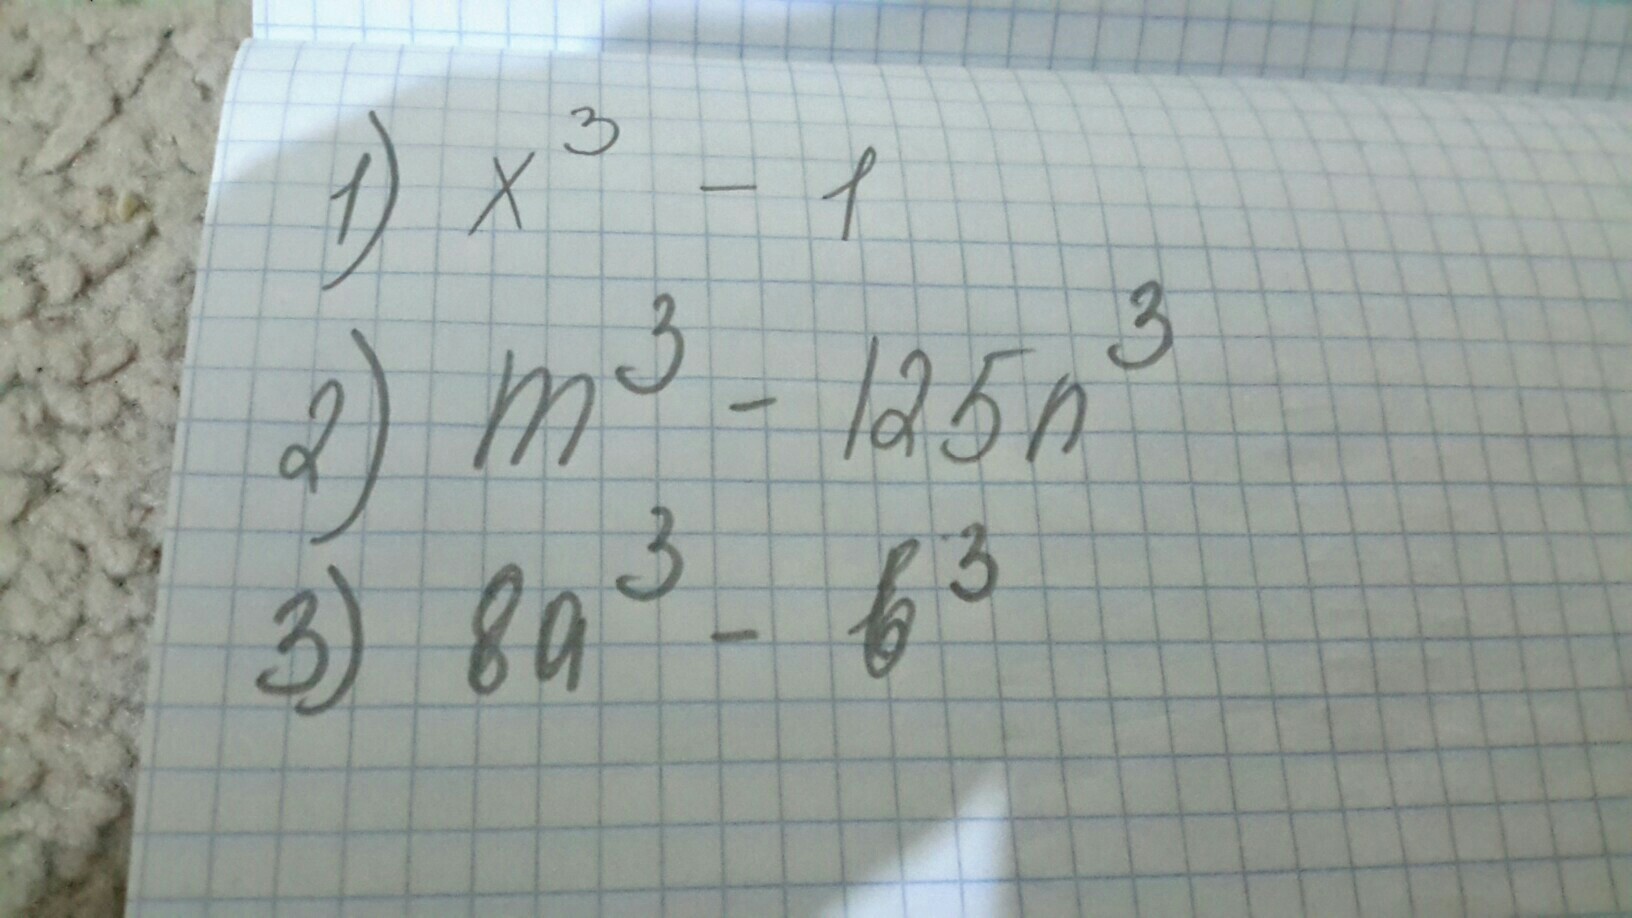 1) x³ - 1
2) m³ - 125n³
3) 8a³ - b³